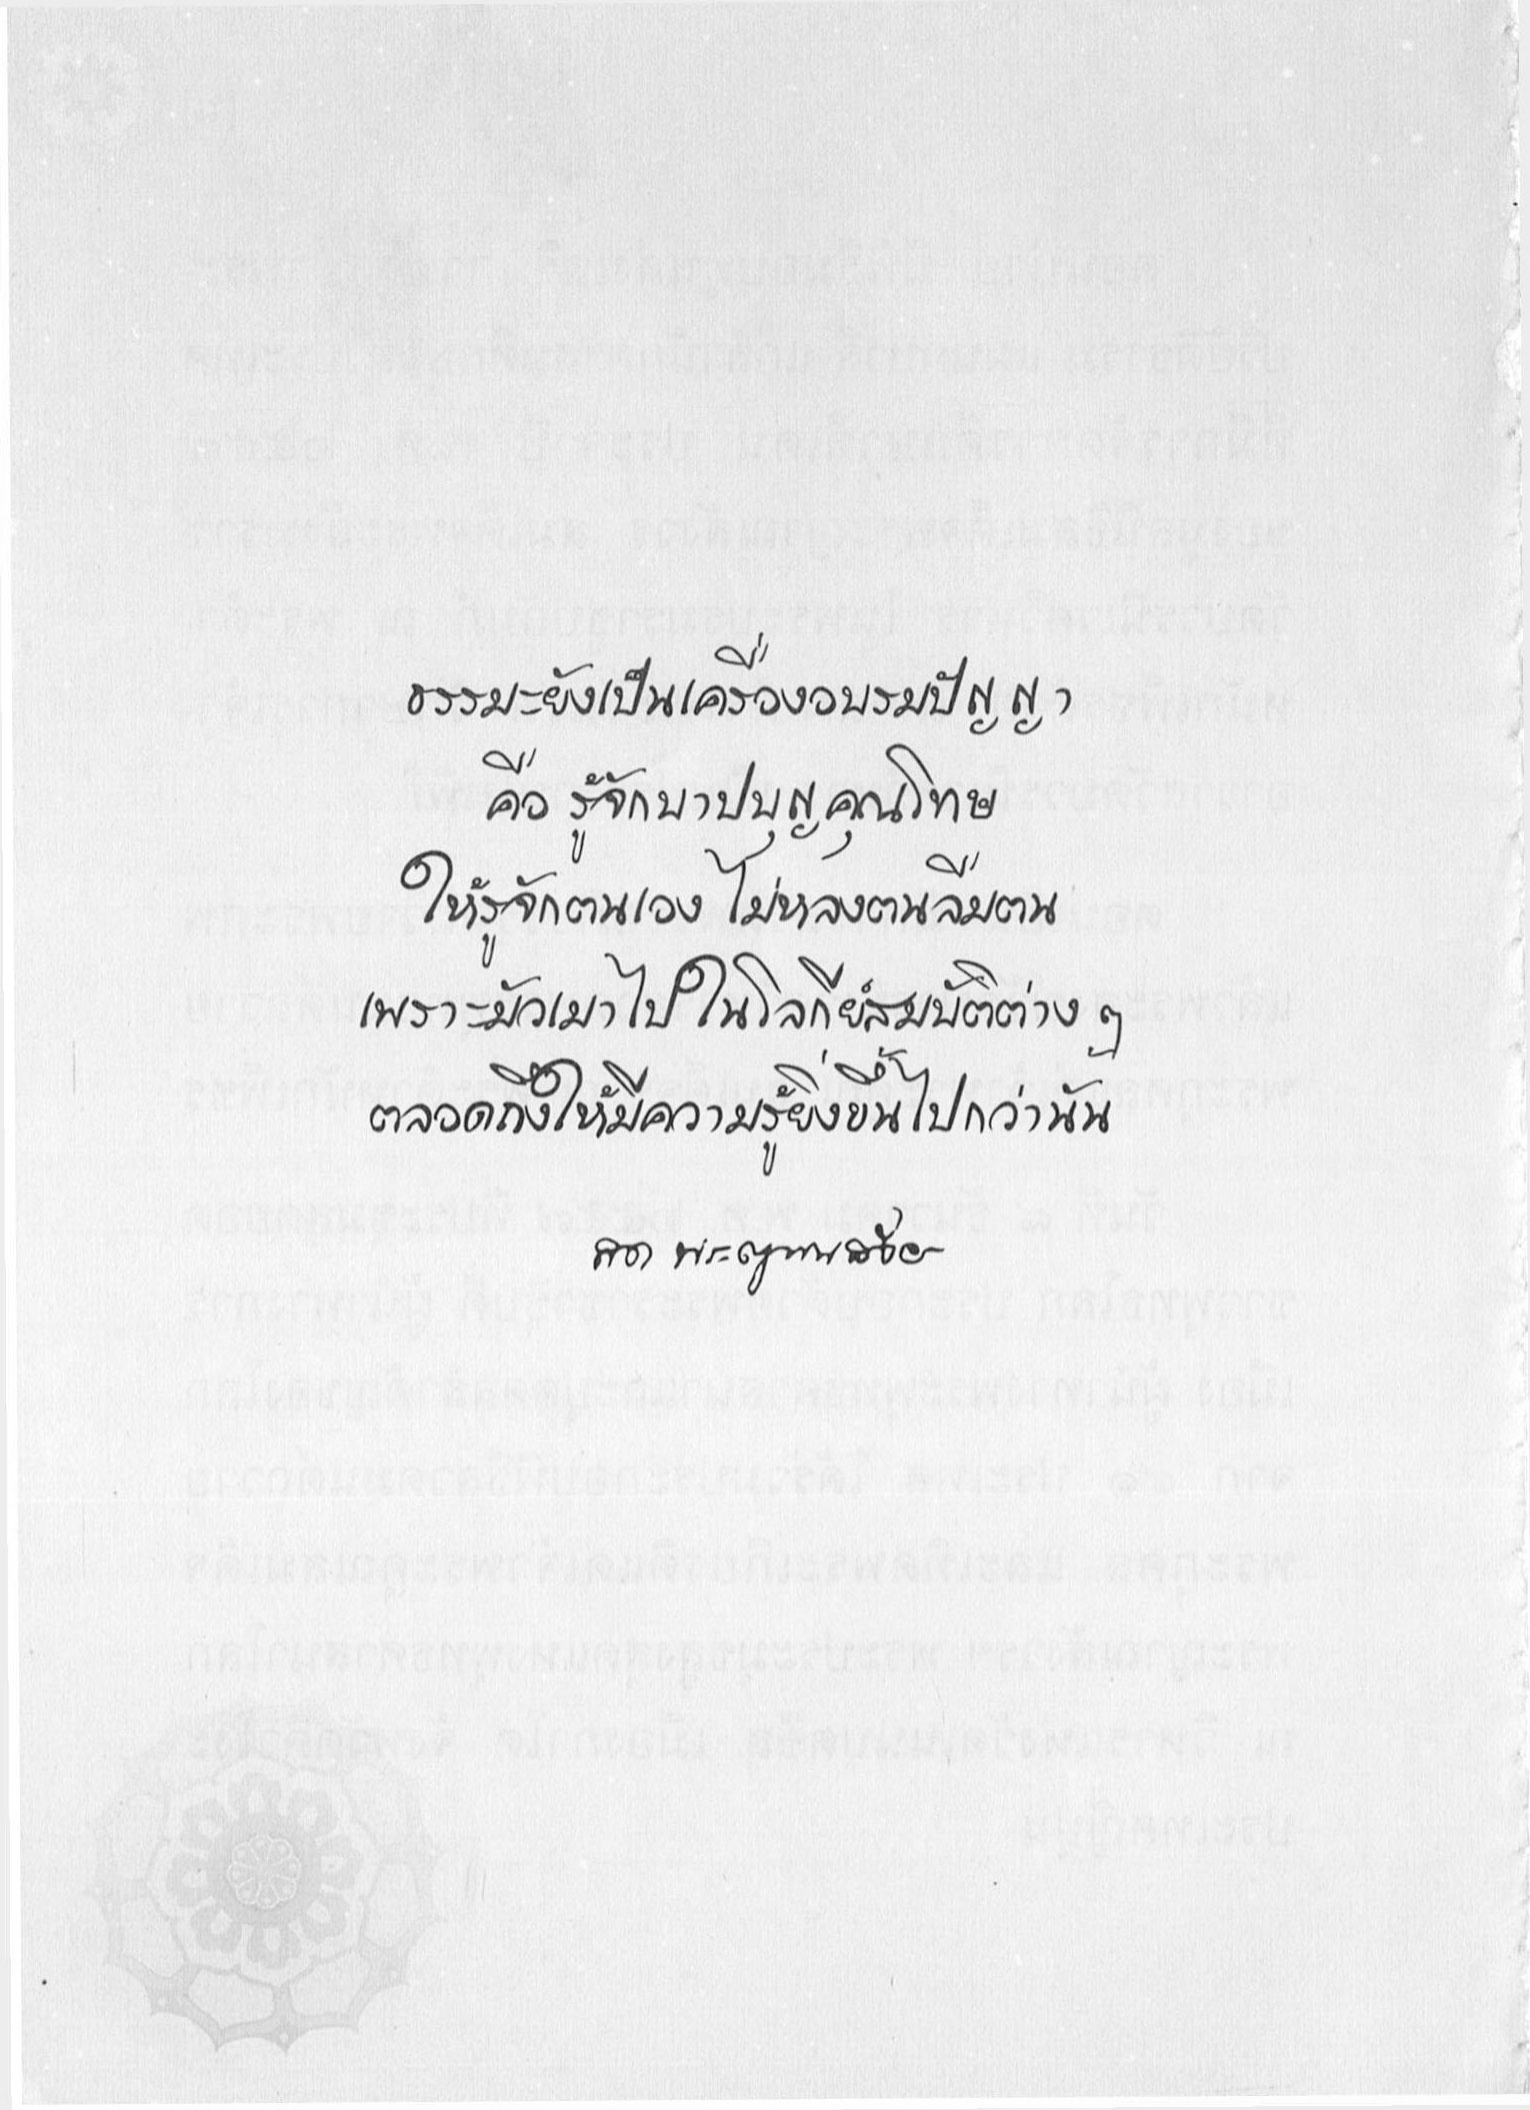 ธรรมะยังเป็นเครื่องอบรมปัญญา
คือ รู้จักบาปบุญคุณโทษ
ให้รู้จักตนเอง ไม่หลงตนลืมตน
เพราะมัวเมาไปในโลกีย์สมบัติต่าง ๆ
ตลอดถึงให้มีความรู้ยิ่งขึ้นไปกว่านั้น